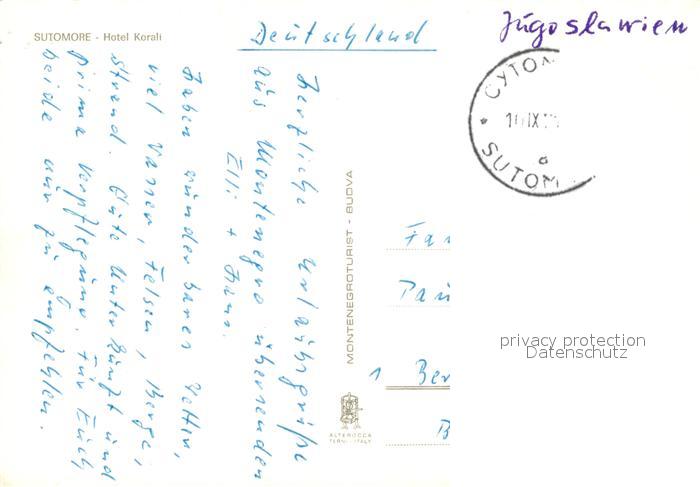 SUTOMORE - Hotel Korali
Deutschland
Jugoslawien
Herzliche Urlaubsgrüße
aus Montenegro übersenden
Elli + Hans.
Haben wunderbares Wetter,
viel Wasser, Felsen, Berge,
Strand. Gute Unterkunft und
prima Verpflegung. Für Euch
beide nur zu empfehlen.
MONTENEGROTURIST - BUDVA
СУТОМ
SUTOM
IX
a
Fa
Pau
1 Ber
B
privacy protection
Datenschutz
ALTEROCCA
TERNI-ITALY